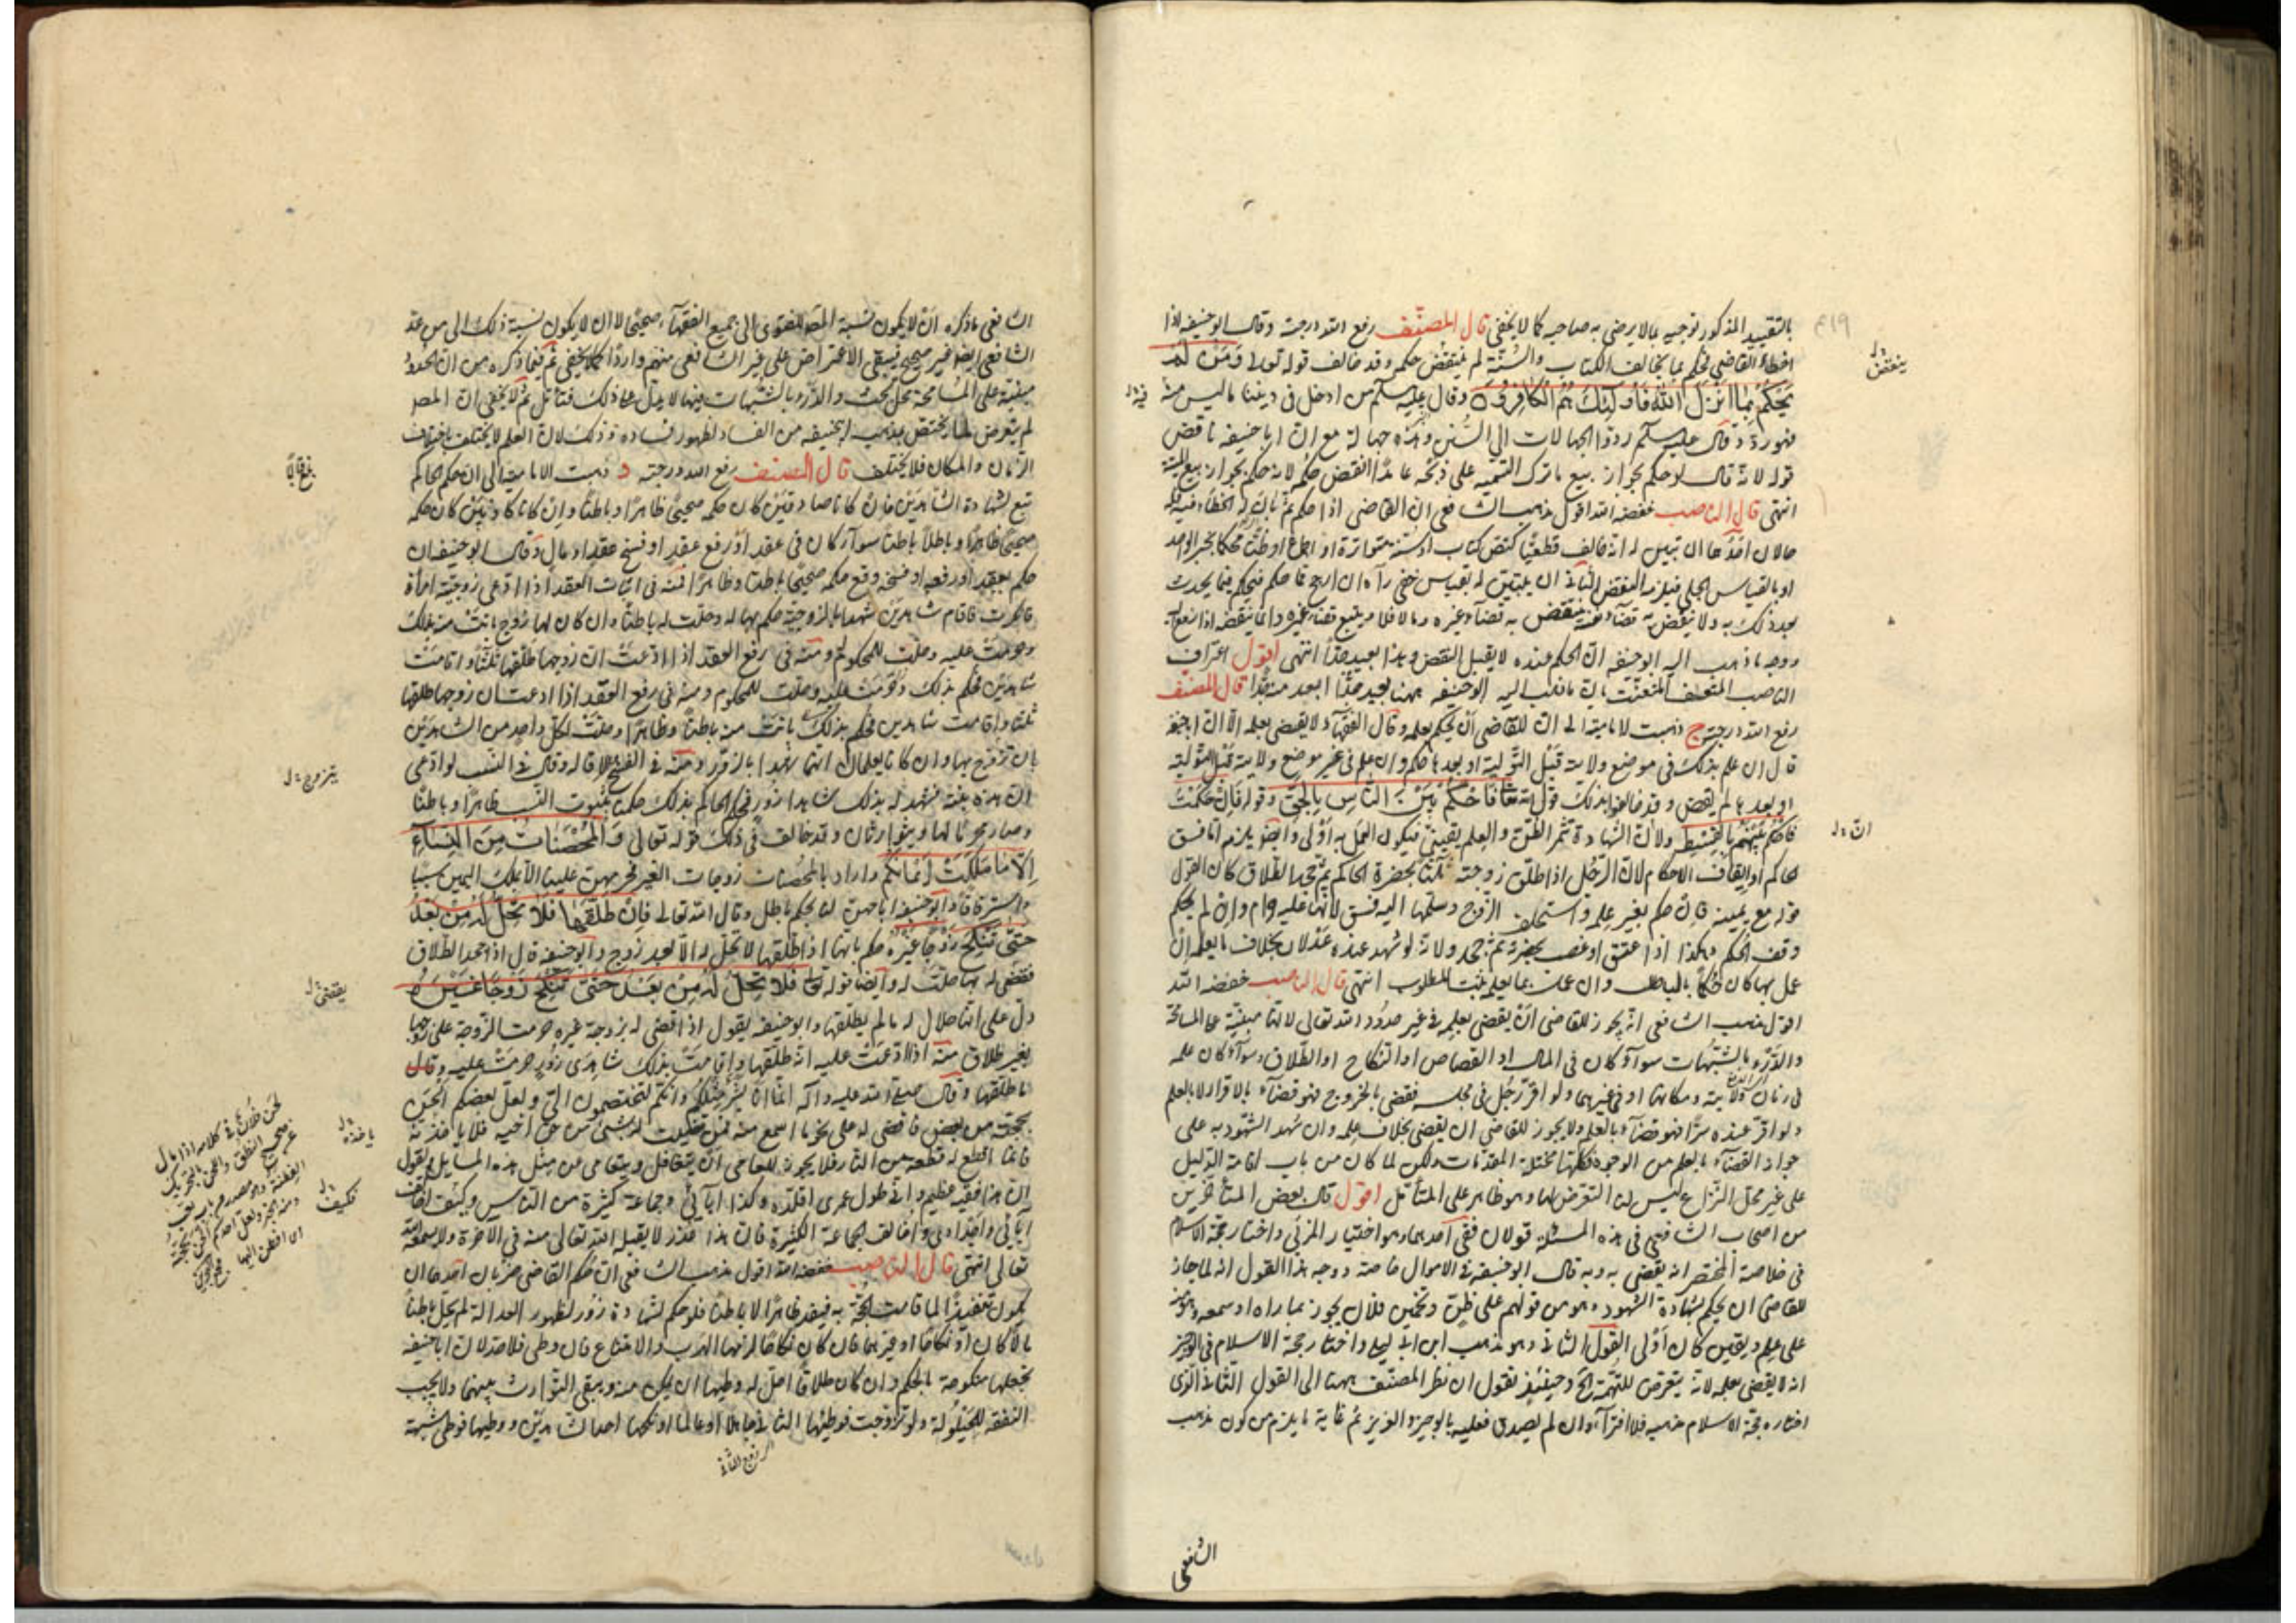 بالتقييد المذكور توجيه بما لا يرضى به صاحبه كما لا يخفى قال المصنف رفع الله درجته وقال ابو حنيفة اذا
اخطاء القاضي فحكم بما يخالف الكتاب والسنة لم ينتقض حكمه وقد خالف قوله تعالى وَمَنْ لَمْ
يَحْكُمْ بِمَا اَنْزَلَ اللهُ فَاُولٰئِكَ هُمُ الْكَافِرُونَ وقال عليه سلم من ادخل في ديننا ما ليس منه
فهو رد وقال عليه سلم ردوا الجهالات الى السنن وهذه جهالة مع ان ابا حنيفة ناقض
قوله لانه قال لو حكم بجواز بيع ما ترك التسمية على ذبحه عامدا انتقض حكمه لانه حكم بجواز بيع الميتة
انتهى قال الناصب خفضه الله اقول مذهب الشافعي ان القاضي اذا حكم ثم بان له الخطاء فيه فله
حالان احدهما ان تبين له انه خالف قطعيا كنص كتاب او سنة متواترة او اجماع او ظنا محكما بخبر الواحد
او بالقياس الجلي فيلزمه النقض الثاني ان يتبين له بقياس خفي رآه ان ارجح مما حكم فيحكم فيما يحدث
بعد ذلك به ولا ينقض به قضاءه
ووجه ما ذهب اليه ابو حنيفة ان الحكم عنده لا يقبل النقض وهذا بعيد جدا انتهى اقول اعتراف
الناصب المتعسف المتعنت بان ما ذهب اليه ابو حنيفة ههنا بعيد جدا ابعد منه جدا قال المصنف
رفع الله درجته ج ذهبت الامامية الى ان للقاضي ان يحكم بعلمه وقال الفقهاء لا يقضي بعلمه الا ان ابا حنيفة
قال ان علم بذلك في موضع ولايته قبل التولية او بعدها حكم وان علم في غير موضع ولايته قبل التولية
او بعدها لم يقض وقد خالفوا بذلك قوله تعالى فَاحْكُمْ بَيْنَ النَّاسِ بِالْحَقِّ وقوله فَاِنْ حَكَمْتَ
فَاحْكُمْ بَيْنَهُمْ بِالْقِسْطِ ولان الشهادة تثمر الظن والعلم يقيني فيكون العمل به اولى وايضا يلزم اما فسق
الحاكم او ايقاف الاحكام لان الرجل اذا طلق زوجته ثلثا بحضرة الحاكم ثم جحد الطلاق كان القول
قوله مع يمينه فان حكم بغير علمه واستحلف الزوج وسلمها اليه فسق لانها عليه حرام وان لم يحكم
وقف الحكم وهكذا اذا اعتق او غصب بحضرته ثم جحد ولانه لو شهد عنده عدلان بخلاف ما يعلم ان
عمل بها كان حكما بالباطل وان عمل بما يعلم ثبت المطلوب انتهى قال الناصب خفضه الله
اقول مذهب الشافعي انه يجوز للقاضي ان يقضي بعلمه في غير حدود الله تعالى لانها مبنية على المسامحة
والدرء بالشبهات سواء كان في المال او القصاص او النكاح او الطلاق وسواء كان علمه
في زمان ولايته ومكانها او في غيرهما ولو اقر رجل في مجلسه فقضى بالخروج فهو قضاء بالاقرار لا بالعلم
ولو اقر عنده سرا فهو قضاء بالعلم ولا يجوز للقاضي ان يقضي بخلاف علمه وان شهد الشهود به على
جواز القضاء بالعلم من الوجوه فكلها مختلة المقدمات ولكن لما كان من باب اقامة الدليل
على غير محل النزاع ليس لنا التعرض لها وهو ظاهر على المتأمل اقول قال بعض المتأخرين
من اصحاب الشافعي في هذه المسئلة قولان ففي احدهما وهو اختيار المزني واختار حجة الاسلام
في خلاصة المختصر انه يقضي به وبه قال ابو حنيفة في الاموال خاصة ووجه هذا القول انه لما جاز
للقاضي ان يحكم بشهادة الشهود وهو من قولهم على ظن وتخمين فلان يجوز بما راه او سمعه وهو منه
على علم ويقين كان اولى القول الثاني وهو مذهب ابن ابي ليلى واختار حجة الاسلام في الوجيز
انه لا يقضي بعلمه لانه يتعرض للتهمة الخ وحينئذ نقول ان نظر المصنف ههنا الى القول الثاني الذي
اختاره حجة الاسلام مذهبه فلا افتراء وان لم يصدق فعليه بالوجيز والعزيز ثم غاية ما يلزم من كون مذهب
الشافعي
الشافعي ما ذكره ان لا يكون نسبة المصر الفتوى الى جميع الفقهاء صحيحا لا ان لا يكون نسبة ذلك الى من عدا
الشافعي ايضا غير صحيح فيبقى الاعتراض على غير الشافعي منهم واردا كما لا يخفى ثم فيما ذكره من ان الحدود
مبنية على المسامحة محل بحث والدرء بالشبهات فيها لا يدل على ذلك فتأمل ثم لا يخفى ان المصر
لم يتعرض لما يختص بمذهب ابي حنيفة من الفساد لظهور فساده وذلك لان العلم لا يختلف باختلاف
الزمان والمكان فلا يختلف قال المصنف رفع الله درجته د ذهبت الامامية الى ان حكم الحاكم
تبع لشهادة الشاهدين فان كانا صادقين كان حكمه صحيحا ظاهرا وباطنا وان كانا كاذبين كان حكمه
صحيحا ظاهرا وباطلا باطنا سواء كان في عقد او رفع عقد او فسخ عقد او مال وقال ابو حنيفة ان
حكم بعقد او رفعه او فسخه وقع حكمه صحيحا باطنا وظاهرا فمنه في اثبات العقد اذا ادعى زوجية امرأة
فانكرت فاقام شاهدين شهدا بالزوجية حكم بها له وحلت له باطنا وان كان لها زوج بانت منه بذلك
وحرمت عليه وحلت للمحكوم له ومنه في رفع العقد اذا ادعت ان زوجها طلقها ثلثا واقامت
شاهدين فحكم بذلك وحرمت عليه وحلت للمحكوم ومنه في رفع العقد اذا ادعت ان زوجها طلقها
ثلثا واقامت شاهدين فحكم بذلك بانت منه باطنا وظاهرا وحلت لكل واحد من الشاهدين
ان تزوج بها وان كانا يعلمان انهما شهدا بالزور ومنه في الفسخ الاقالة وقال في النسب لو ادعى
ان هذه بنته فشهد له بذلك شاهدا زور فحكم الحاكم بذلك حكمنا بثبوت النسب ظاهرا وباطنا
وصار محرما لها ويتوارثان وقد خالف في ذلك قوله تعالى وَالْمُحْصَنَاتُ مِنَ النِّسَاءِ
اِلَّا مَا مَلَكَتْ اَيْمَانُكُمْ واراد بالمحصنات زوجات الغير فحرمهن علينا الا بملك اليمين سبيا
واسترقاقا وابو حنيفة اباحهن لنا بحكم باطل وقال الله تعالى فَاِنْ طَلَّقَهَا فَلَا تَحِلُّ لَهُ مِنْ بَعْدُ
حَتّٰى تَنْكِحَ زَوْجًا غَيْرَهُ حكم بانها اذا طلقها لا تحل له الا بعد زوج وابو حنيفة قال اذا جحد الطلاق
فقضى له بها حلت له وايضا قوله تعالى فَلَا تَحِلُّ لَهُ مِنْ بَعْدُ حَتّٰى تَنْكِحَ زَوْجًا غَيْرَهُ
دل على انها حلال له ما لم يطلقها وابو حنيفة يقول اذا قضى له بزوجة غيره حرمت الزوجة على زوجها
بغير طلاق منه اذا ادعت عليه انه طلقها واقامت بذلك شاهدي زور حرمت عليه وقال
ما طلقها وقال صلى الله عليه وآله انما انا بشر مثلكم وانكم لتختصمون الي ولعل بعضكم الحن
بحجته من بعض فاقضي له على نحو ما اسمع منه فمن قضيت له بشيء من حق اخيه فلا ياخذ منه
فانما اقطع له قطعة من النار فلا يجوز للعامي ان يتغافل ويتعامى عن مثل هذه المسايل ويقول
ان هذا فقيه عظيم وانه طول عمري اقلده وكذا آبائي وجماعة كثيرة من الناس وكيف اخالف
آبائي واجدادي واخالف الجماعة الكثيرة فان هذا عذر لا يقبله الله تعالى منه في الاخرة ولا يسمعه الله
تعالى انتهى قال الناصب خفضه الله اقول مذهب الشافعي ان حكم القاضي ضربان احدهما ان
يكون تنفيذا لما قامت الحجة به فينفذ ظاهرا لا باطنا فلو حكم لشهادة زور لظهور العدالة لم يحل باطنا
مالا كان او نكاحا او غيرهما فان كان نكاحا لزمها الهرب والامتناع فان وطي فلا حد لان ابا حنيفة
يجعلها منكوحة بالحكم وان كان طلاقا احل له وطيها ان يمكن منه ويبقى التوارث بينهما ولا يجب
النفقة للحيلولة ولو تزوجت فوطئها الثاني جاهلا او عالما او نكحها احد الشاهدين ووطيها فوطي شبهة
ينتقض
فيه
ان
يتزوج
يقضى
ياخذه
فكيف